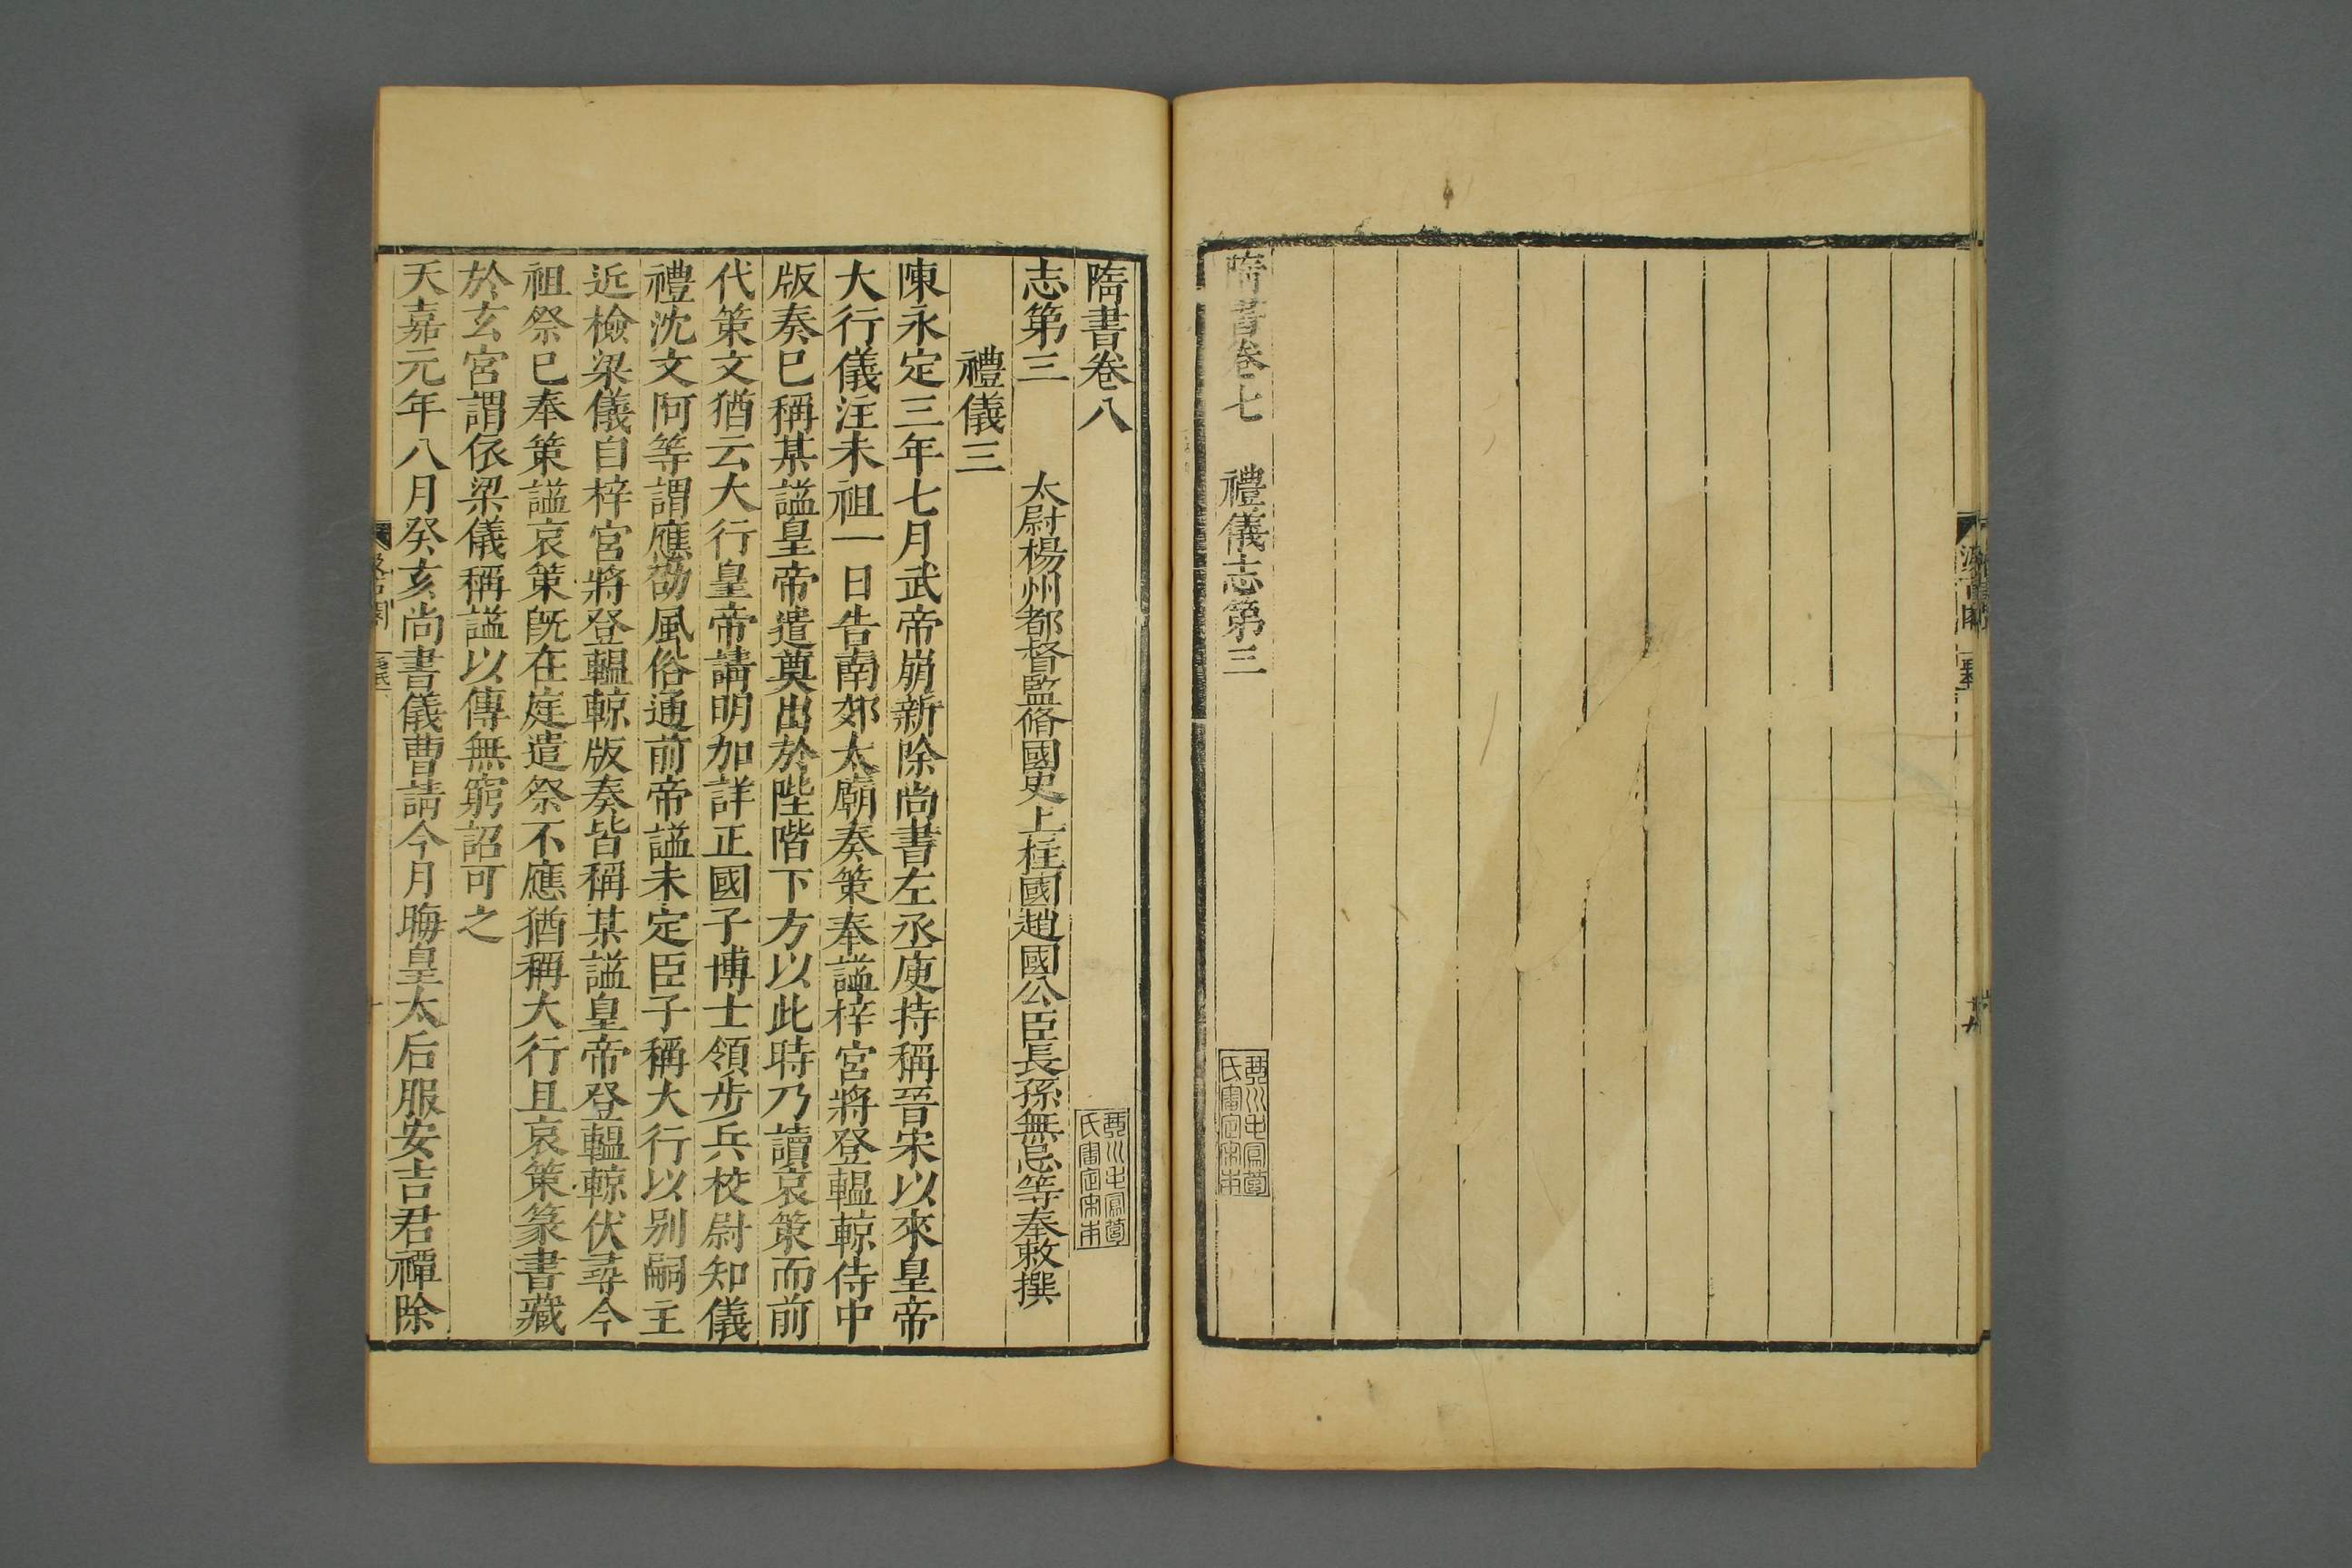 隋書卷七　禮儀志第三
隋書卷八
志第三　太尉楊州都督監脩國史上柱國趙國公臣長孫無忌等奉敕撰
禮儀三
陳永定三年七月武帝崩新除尚書左丞庾持稱晉宋以來皇帝
大行儀注未祖一日告南郊太廟奏策奉謚梓宮將登轀輬侍中
版奏已稱某謚皇帝遣奠出於陛階下方以此時乃讀哀策而前
代策文猶云大行皇帝請明加詳正國子博士領步兵校尉知儀
禮沈文阿等謂應劭風俗通前帝謚未定臣子稱大行以別嗣主
近檢梁儀自梓宮將登轀輬版奏皆稱某謚皇帝登轀輬伏尋今
祖祭已奉策謚哀策旣在庭遣祭不應猶稱大行且哀策篆書藏
於玄宮謂依梁儀稱謚以傳無窮詔可之
天嘉元年八月癸亥尚書儀曹請今月晦皇太后服安吉君禫除